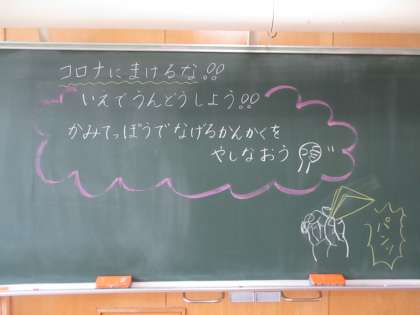 コロナにまけるな!!
いえでうんどうしよう!!
かみてっぽうでなげるかんかくを
やしなおう
パンッ